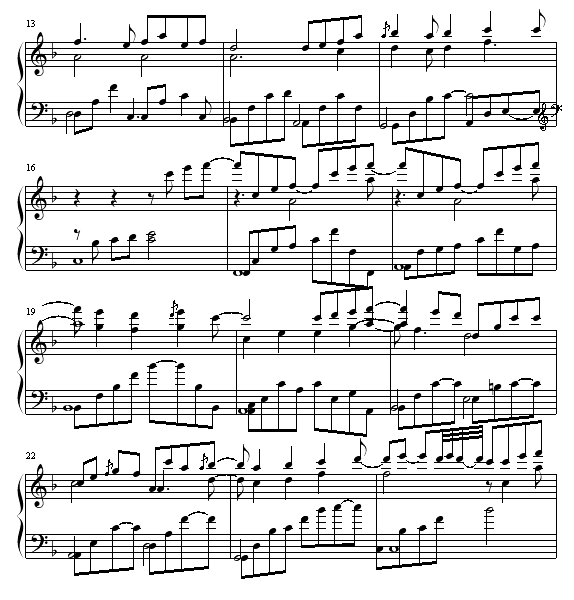 13
16
19
22